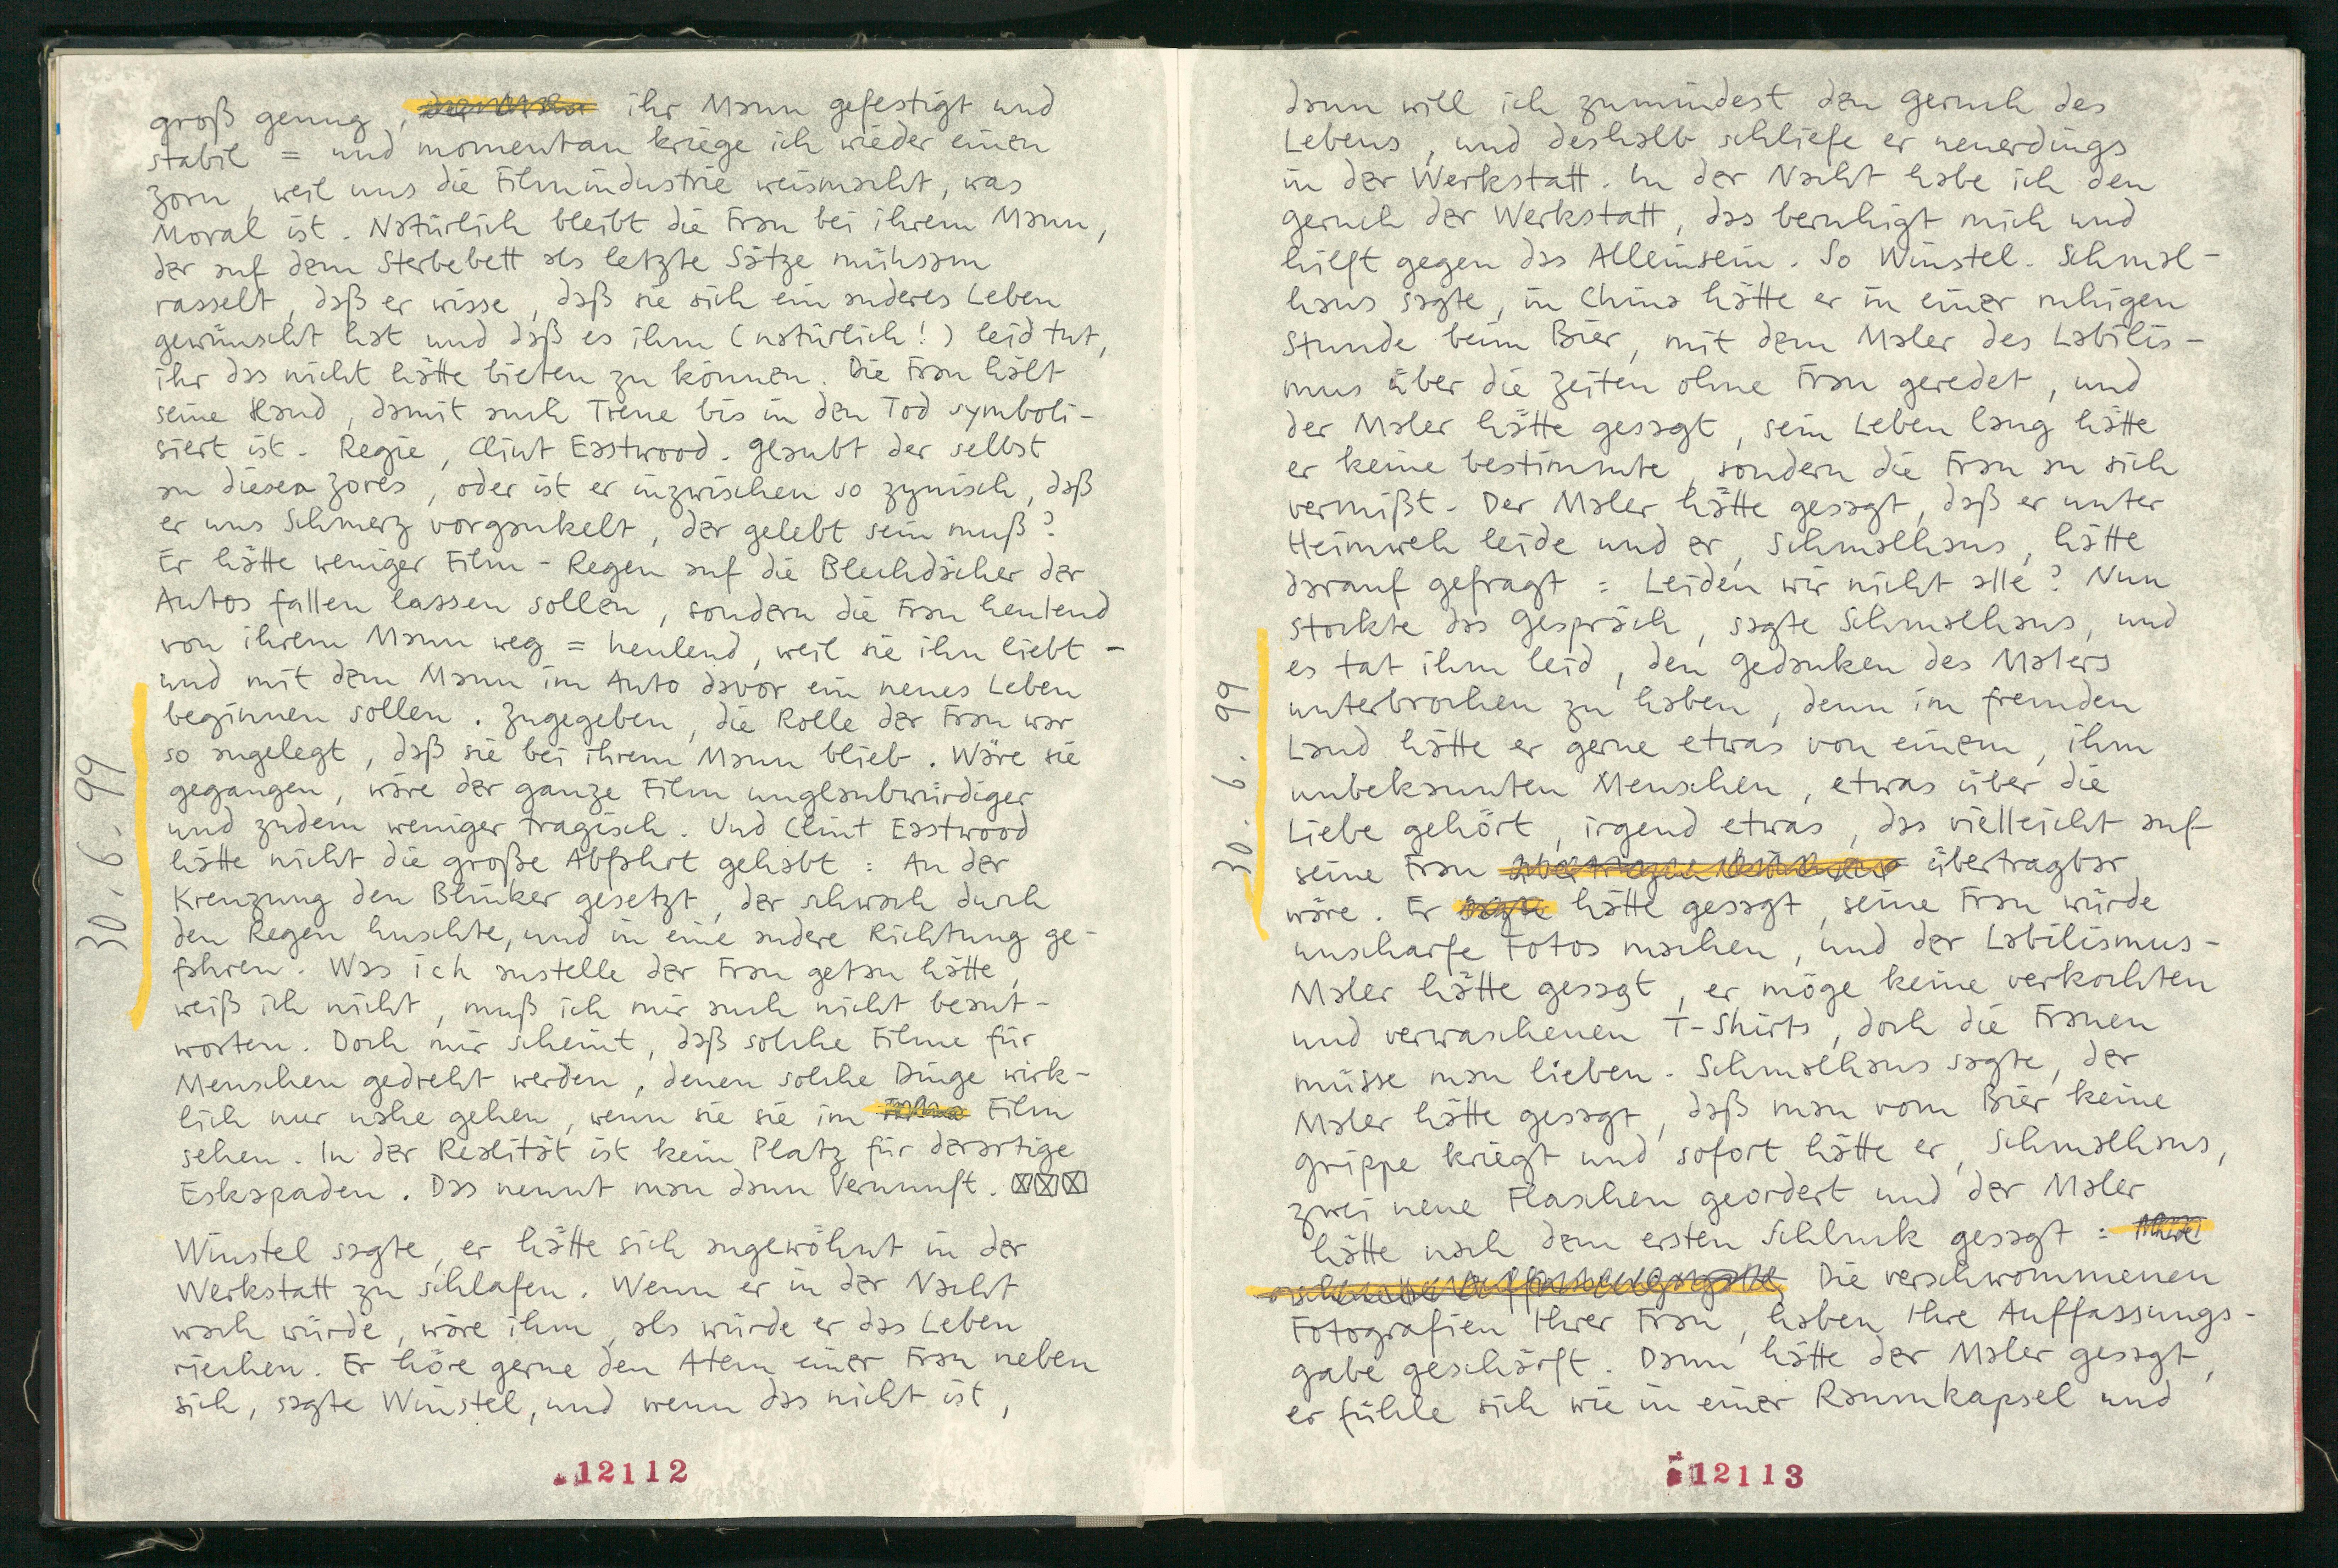 groß genug, ihr Mann gefestigt und
stabil = und momentan kriege ich wieder einen
Zorn, weil uns die Filmindustrie weismacht, was
Moral ist. Natürlich bleibt die Frau bei ihrem Mann,
der auf dem Sterbebett als letzte Sätze mühsam
rasselt, daß er wisse, daß sie sich ein anderes Leben
gewünscht hat und daß es ihm (natürlich!) leid tut,
ihr das nicht hätte bieten zu können. Die Frau hält
seine Hand, damit auch Treue bis in den Tod symboli-
siert ist. Regie, Clint Eastwood. Glaubt der selbst
an diesen Zores, oder ist er inzwischen so zynisch, daß
er uns Schmerz vorgaukelt, der gelebt sein muß?
Er hätte weniger Film-Regen auf die Blechdächer der
Autos fallen lassen sollen, sondern die Frau heulend
von ihrem Mann weg = heulend, weil sie ihn liebt -
und mit dem Mann im Auto davor ein neues Leben
beginnen sollen. Zugegeben, die Rolle der Frau war
so angelegt, daß sie bei ihrem Mann blieb. Wäre sie
gegangen, wäre der ganze Film unglaubwürdiger
und zudem weniger tragisch. Und Clint Eastwood
hätte nicht die große Abfahrt gehabt: An der
Kreuzung den Blinker gesetzt, der schwach durch
den Regen huschte, und in eine andere Richtung ge-
fahren. Was ich anstelle der Frau getan hätte,
weiß ich nicht, muß ich mir auch nicht beant-
worten. Doch mir scheint, daß solche Filme für
Menschen gedreht werden, denen solche Dinge wirk-
lich nur nahe gehen, wenn sie sie im Film
sehen. In der Realität ist kein Platz für derartige
Eskapaden. Das nennt man dann Vernunft. ☒☒☒
Winstel sagte, er hätte sich angewöhnt in der
Werkstatt zu schlafen. Wenn er in der Nacht
wach würde, wäre ihm, als würde er das Leben
riechen. Er höre gerne den Atem einer Frau neben
sich, sagte Winstel, und wenn das nicht ist,
30.6.99
12112
dann will ich zumindest den Geruch des
Lebens, und deshalb schliefe er neuerdings
in der Werkstatt. In der Nacht habe ich den
Geruch der Werkstatt, das beruhigt mich und
hilft gegen das Alleinsein. So Winstel. Schmal-
haus sagte, in China hätte er in einer ruhigen
Stunde beim Bier, mit dem Maler des Labilis-
mus über die Zeiten ohne Frau geredet, und
der Maler hätte gesagt, sein Leben lang hätte
er keine bestimmte, sondern die Frau an sich
vermißt. Der Maler hätte gesagt, daß er unter
Heimweh leide und er, Schmalhaus, hätte
darauf gefragt: Leiden wir nicht alle? Nun
stockte das Gespräch, sagte Schmalhaus, und
es tat ihm leid, den Gedanken des Malers
unterbrochen zu haben, denn im fremden
Land hätte er gerne etwas von einem, ihm
unbekannten Menschen, etwas über die
Liebe gehört, irgend etwas, das vielleicht auf
seine Frau übertragbar
wäre. Er hätte gesagt, seine Frau würde
unscharfe Fotos machen, und der Labilismus-
Maler hätte gesagt, er möge keine verkochten
und verwaschenen T-Shirts, doch die Frauen
müsse man lieben. Schmalhaus sagte, der
Maler hätte gesagt, daß man vom Bier keine
Grippe kriegt und sofort hätte er, Schmalhaus,
zwei neue Flaschen geordert und der Maler
hätte nach dem ersten Schluck gesagt:
Die verschwommenen
Fotografien Ihrer Frau, haben Ihre Auffassungs-
gabe geschärft. Dann hätte der Maler gesagt,
er fühle sich wie in einer Raumkapsel und
30.6.99
12113